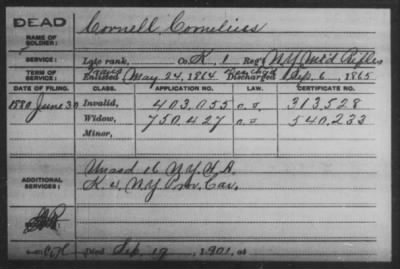 DEAD
NAME OF SOLDIER:
Cornell Cornelius
SERVICE:
Late rank, Co. K, 1 Reg't N.Y. Mt'd Rifles
TERM OF SERVICE:
Enlisted May 24, 1864 Discharged Sep. 6, 1865
DATE OF FILING. CLASS. APPLICATION NO. LAW. CERTIFICATE NO.
1880 June 30 Invalid, 403,055 313,528
Widow, 750,427 540,233
Minor,
ADDITIONAL SERVICES:
Unasd 16 N.Y. H.A.
K 4, N.Y. Prov. Cav.
Died Sep. 19, 1901, at